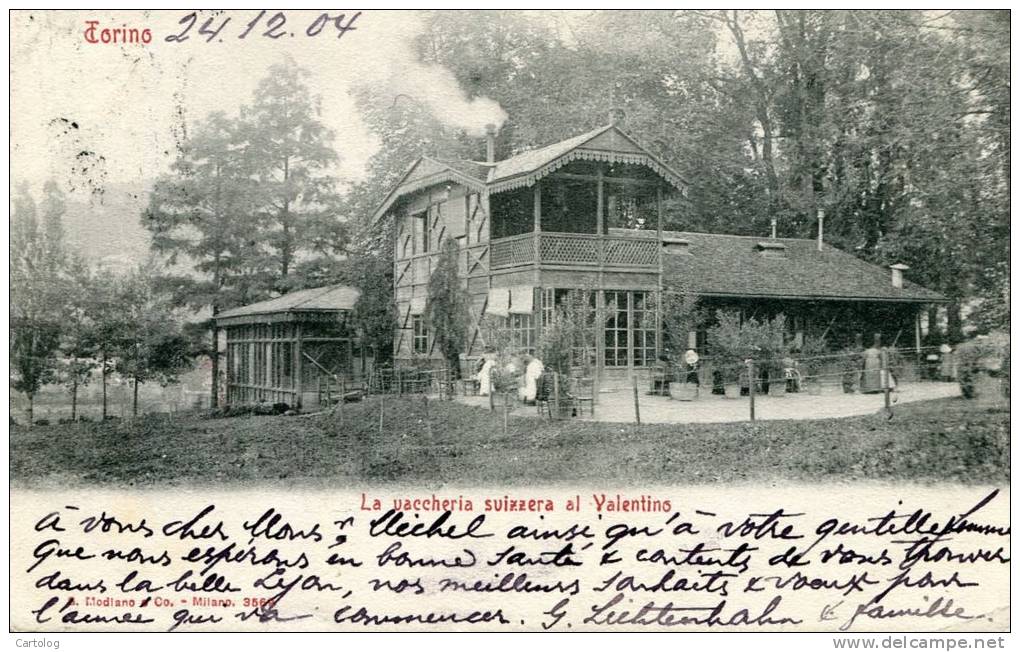 Torino 24.12.04
La vaccheria svizzera al Valentino
à vous cher Mons.r Michel ainsi qu'à votre gentille femme
Que nous espérons en bonne Santé & contents de vous trouver
dans la belle Lyon, nos meilleurs souhaits & voeux pour
G. Modiano & Co. - Milano. 3566
l'année qui va commencer. G. Lichtenhahn & famille.
Cartolog
http://www.delcampe.net